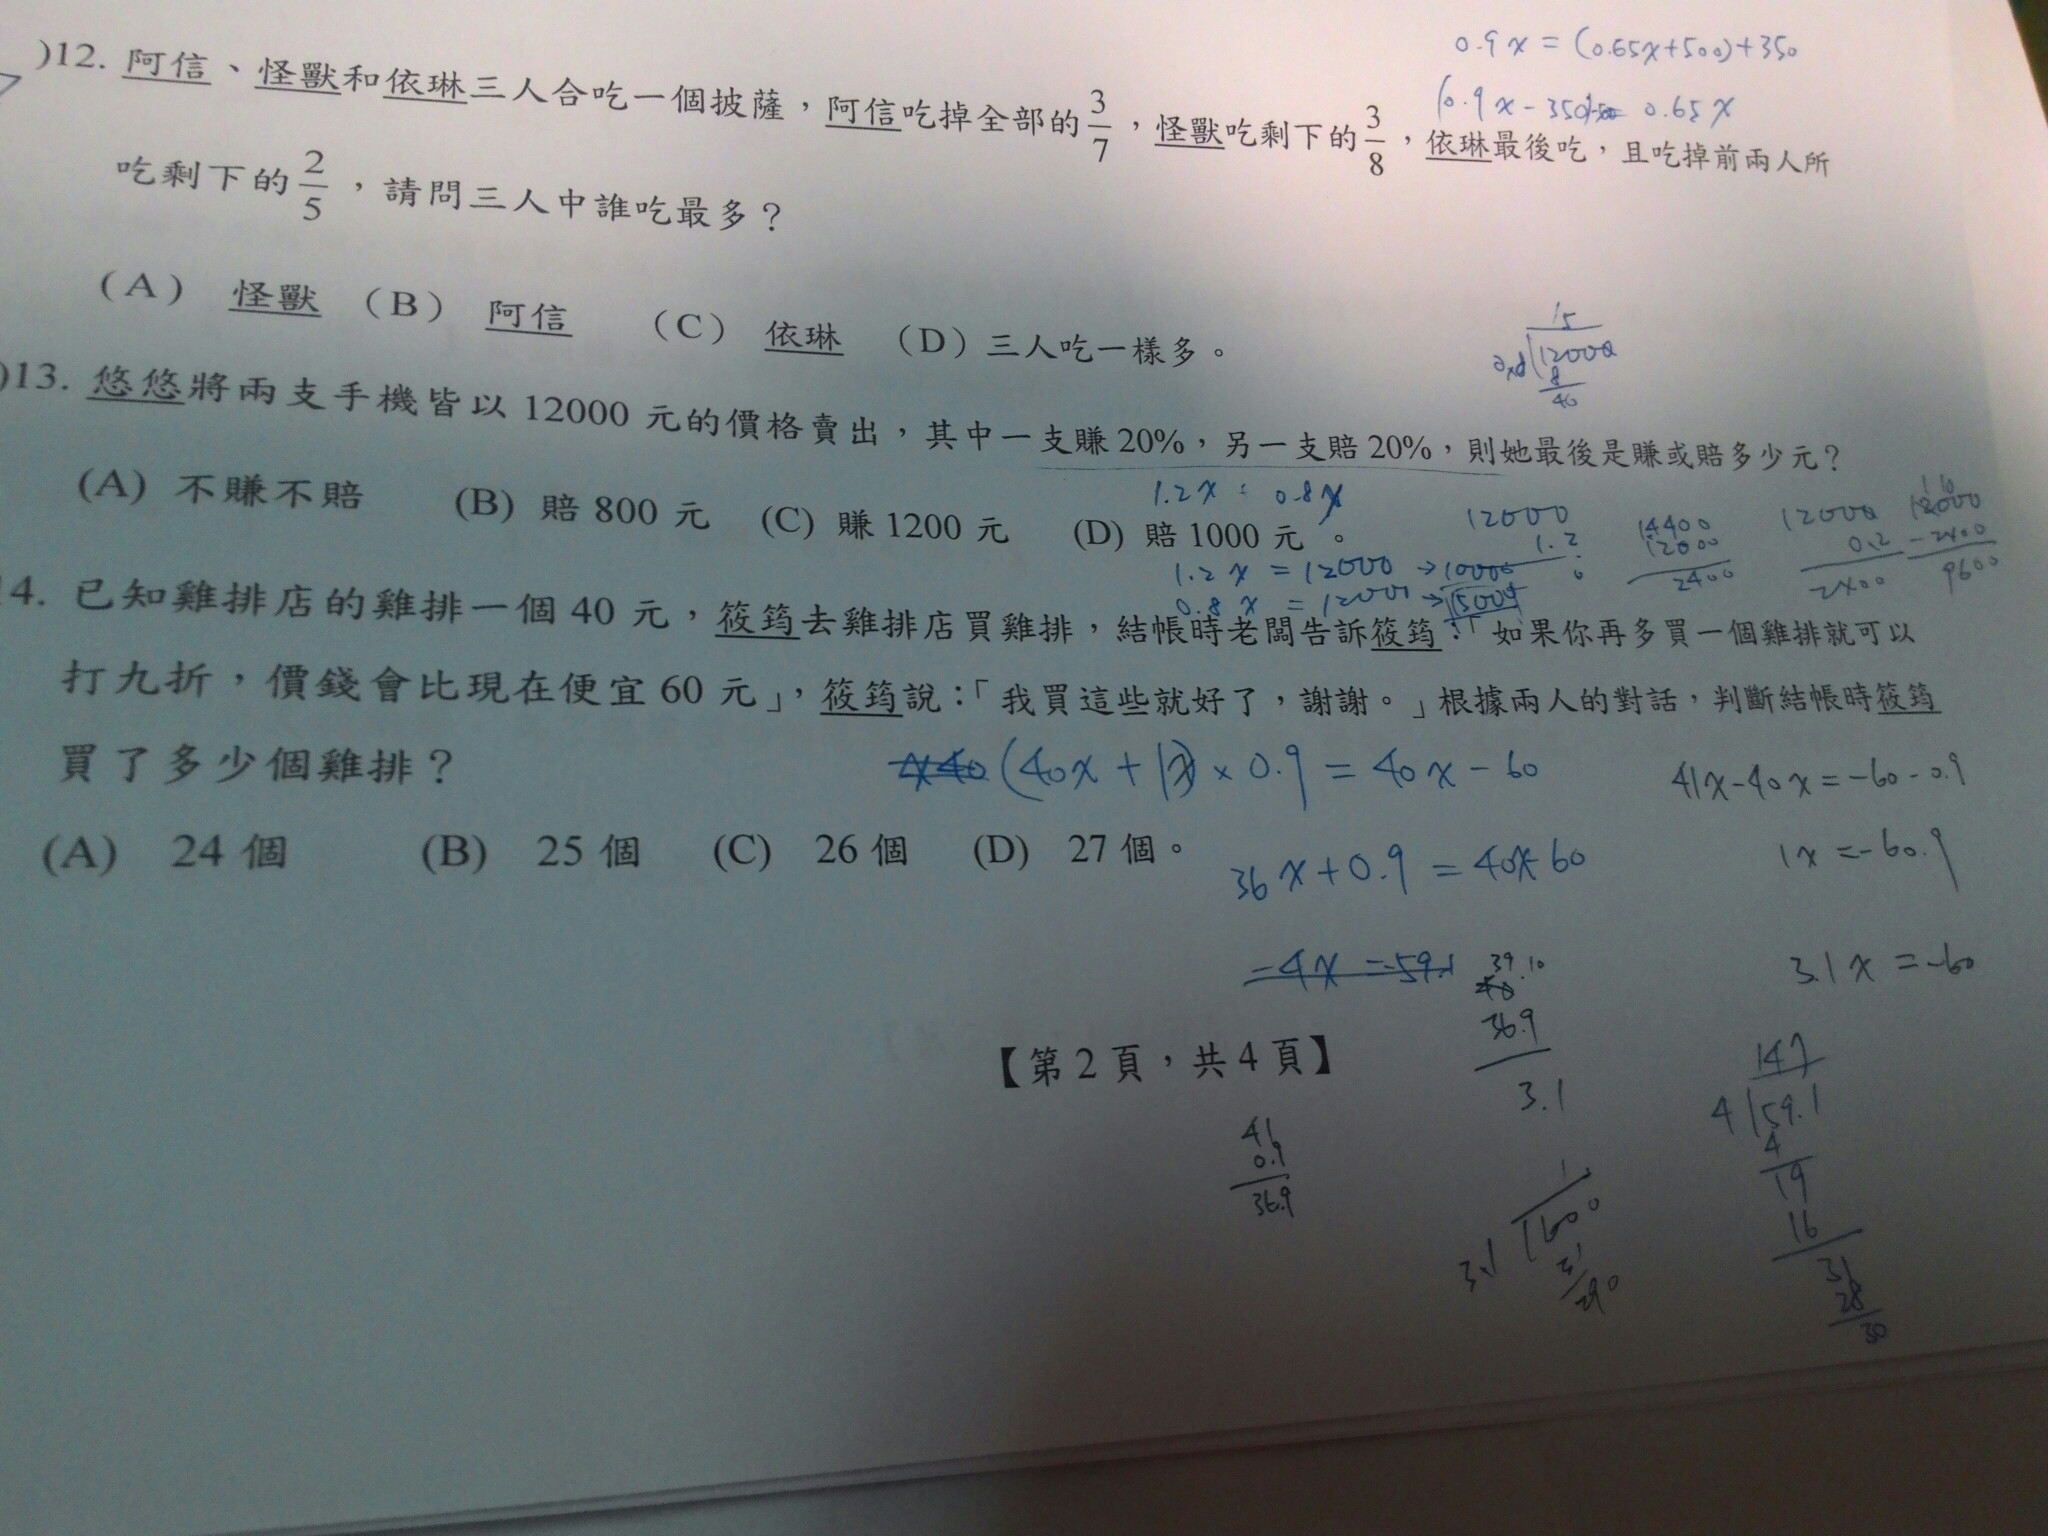 0.9x = (0.65x+500)+350
0.65x
)12. 阿信、怪獸和依琳三人合吃一個披薩，阿信吃掉全部的3/7，怪獸吃剩下的3/8，依琳最後吃，且吃掉前兩人所
吃剩下的2/5，請問三人中誰吃最多？
(A) 怪獸 (B) 阿信 (C) 依琳 (D) 三人吃一樣多。
15
12000
8
40
)13. 悠悠將兩支手機皆以 12000 元的價格賣出，其中一支賺 20%，另一支賠 20%，則她最後是賺或賠多少元？
(A) 不賺不賠 (B) 賠 800 元 (C) 賺 1200 元 (D) 賠 1000 元。
1.2x = 0.8x
12000
1.2
14400
12000
2400
12000
0.2
2400
12000
-2400
9600
1.2x = 12000 → 10000
0.8x = 12000 → 15000
14. 已知雞排店的雞排一個 40 元，筱筠去雞排店買雞排，結帳時老闆告訴筱筠：「如果你再多買一個雞排就可以
打九折，價錢會比現在便宜 60 元」，筱筠說：「我買這些就好了，謝謝。」根據兩人的對話，判斷結帳時筱筠
買了多少個雞排？
(40x + 1) × 0.9 = 40x - 60
41x-40x = -60-0.9
(A) 24 個 (B) 25 個 (C) 26 個 (D) 27 個。
36x+0.9 = 40x-60
1x = -60.9
-4x = -59.1
3.1x = -60
39.10
40
36.9
3.1
【第 2 頁，共 4 頁】
147
4 59.1
4
19
16
31
28
30
41
0.9
36.9
1
3.1 600
31
290